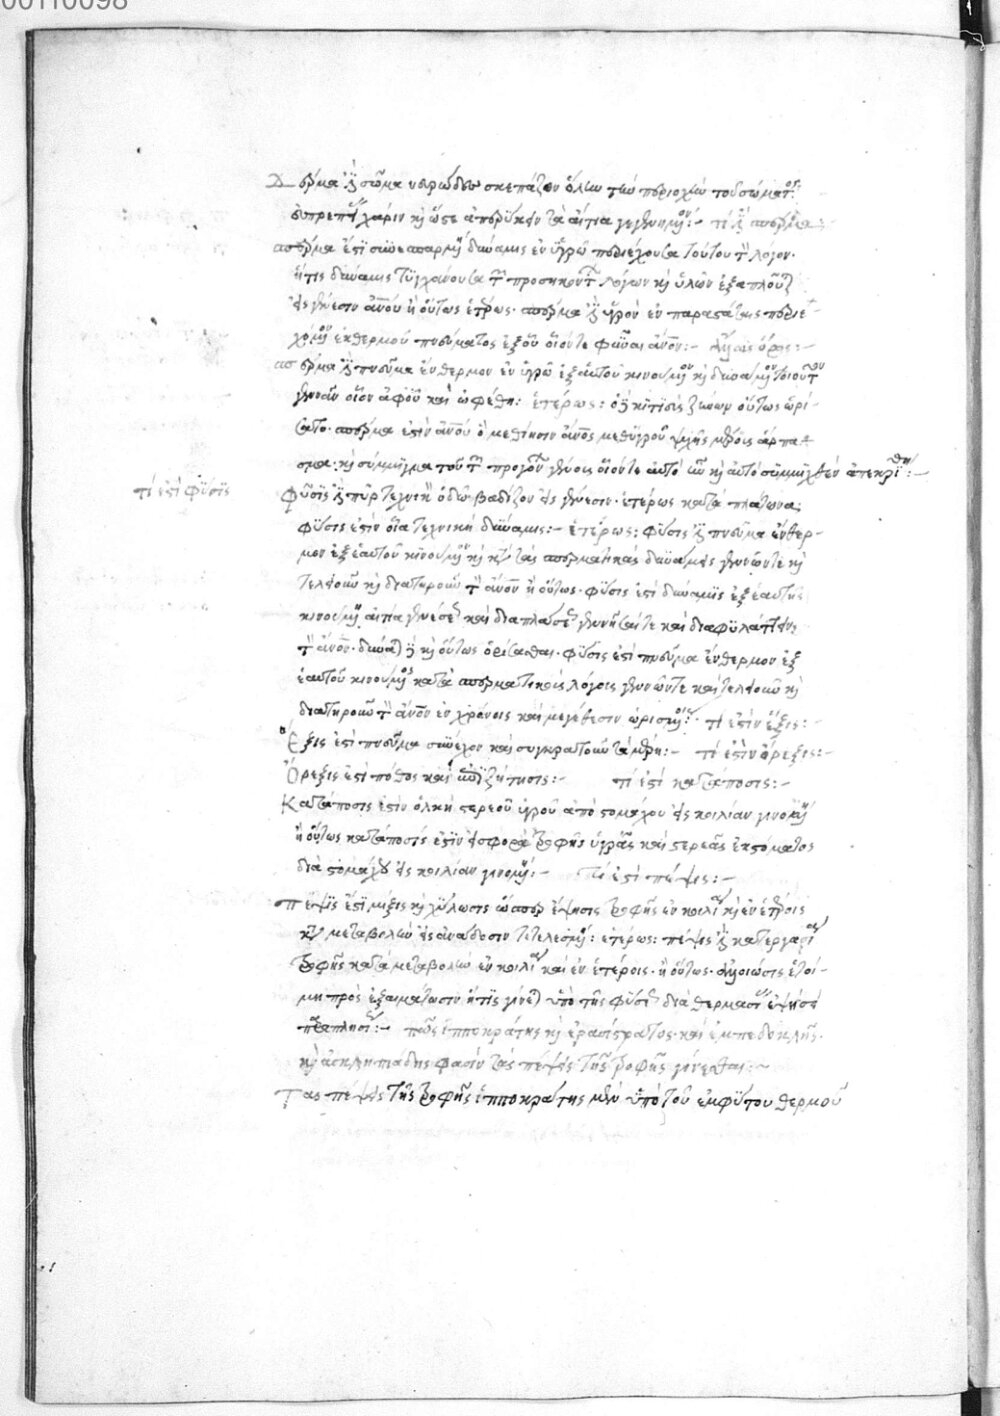 00110098
Δέρμα ἐστὶ σῶμα νευρῶδες σκεπάζον ὅλην τὴν περιοχὴν τοῦ σώματος
εὐπρεπείας χάριν καὶ ὥστε ἀπερύκειν τὰ αἴτια γεγενημένον:- τί ἐστι σπέρμα:-
σπέρμα ἐστὶ συνεσπαρμένη δύναμις ἐν ὑγρῷ περιέχουσα τούτου τὸν λόγον.
ἥτις δύναμις τυγχάνουσα τῶν προσηκόντων λόγων καὶ ὑλῶν ἐξαπλοῦται
εἰς γένεσιν ἀνθρώπου ἢ οὕτως ἑτέρως. σπέρμα ἐστὶν ὑγρὸν ἐν παραστάταις περιε-
χόμενον ἐκ θερμοῦ πνεύματος ἐξ οὗ οἷόν τε φῦναι ἄνθρωπον:- ἄλλως ὅρος:-
σπέρμα ἐστὶ πνεῦμα ἔνθερμον ἐν ὑγρῷ ἐξ ἑαυτοῦ κινούμενον καὶ δυνάμενον τοιοῦτον
γεννᾶν οἷον ἀφ' οὗ καὶ ἀφέθη: ἑτέρως: ὁ κτήσις Ζήνων οὕτως ὡρί-
σατο. σπέρμα ἐστὶν ἀνθρώπου ὃ μεθίησιν ἄνθρωπος μεθ' ὑγροῦ ψυχῆς μέρους ἅρπα-
σμα: καὶ σύμμιγμα τοῦ τῶν προγόνων γένους οἷόν τε αὐτὸ ἦν καὶ αὐτὸ συμμιχθὲν ἀπεκρίθη:-
τί ἐστι φύσις
φύσις ἐστὶ πῦρ τεχνικὸν ὁδῷ βαδίζον εἰς γένεσιν. ἑτέρως κατὰ πλάτωνα:
φύσις ἐστὶν θεία τεχνικὴ δύναμις:- ἑτέρως: φύσις ἐστὶ πνεῦμα ἔνθερ-
μον ἐξ ἑαυτοῦ κινούμενον καὶ κατὰ τὰς σπερματικὰς δυνάμεις γεννῶν τε καὶ
τελειοῦν καὶ διατηροῦν τὸν ἄνθρωπον ἢ οὕτως. φύσις ἐστὶ δύναμις ἐξ ἑαυτῆς
κινουμένη αἰτία γενέσεως καὶ διαπλάσεως γεννῆσαί τε καὶ διαφυλάττειν
τὸν ἄνθρωπον. δύναται δὲ καὶ οὕτως ὁρίσασθαι. φύσις ἐστὶ πνεῦμα ἔνθερμον ἐξ
ἑαυτοῦ κινούμενον κατὰ σπερματικοὺς λόγους γεννῶν τε καὶ τελειοῦν καὶ
διατηροῦν τὸν ἄνθρωπον ἐν χρόνοις καὶ μεγέθεσιν ὡρισμένοις. τί ἐστὶν ἕξις:-
Ἕξις ἐστὶ πνεῦμα συνέχον καὶ συγκρατοῦν τὰ μέρη:- τί ἐστὶν ὄρεξις:-
Ὄρεξις ἐστὶ πόθος καὶ ἐπιζήτησις:- τί ἐστι κατάποσις:-
Κατάποσις ἐστὶν ὁλκὴ στερεοῦ ὑγροῦ ἀπὸ στομάχου εἰς κοιλίαν γινομένη
ἢ οὕτως κατάποσίς ἐστὶν εἰσφορὰ τροφῆς ὑγρᾶς καὶ στερεᾶς ἐκ στόματος
διὰ στομάχου εἰς κοιλίαν γινομένη:- Τί ἐστι πέψις:-
πέψις ἐστὶ μίξις καὶ χύλωσις ὥσπερ ἕψησις τροφῆς ἐν κοιλίᾳ καὶ ἐν ἑτέροις
κατὰ μεταβολὴν εἰς ἀνάδοσιν τετελεσμένη: ἑτέρως: πέψις ἐστὶ κατεργασία
τροφῆς κατὰ μεταβολὴν ἐν κοιλίᾳ καὶ ἐν ἑτέροις. ἢ οὕτως. ἀλλοίωσις ἑτοί-
μη πρὸς ἐξαιμάτωσιν ἥτις γίνεται ὑπὸ τῆς φύσεως διὰ θερμασίας ἑψήσει
παραπλησίως:- πῶς ἱπποκράτης καὶ ἐρασίστρατος. καὶ ἐμπεδοκλῆς.
καὶ ἀσκληπιάδης φασὶν τὰς πέψεις τῆς τροφῆς γίνεσθαι:-
Τὰς πέψεις τῆς τροφῆς ἱπποκράτης μὲν ὑπὸ τοῦ ἐμφύτου θερμοῦ